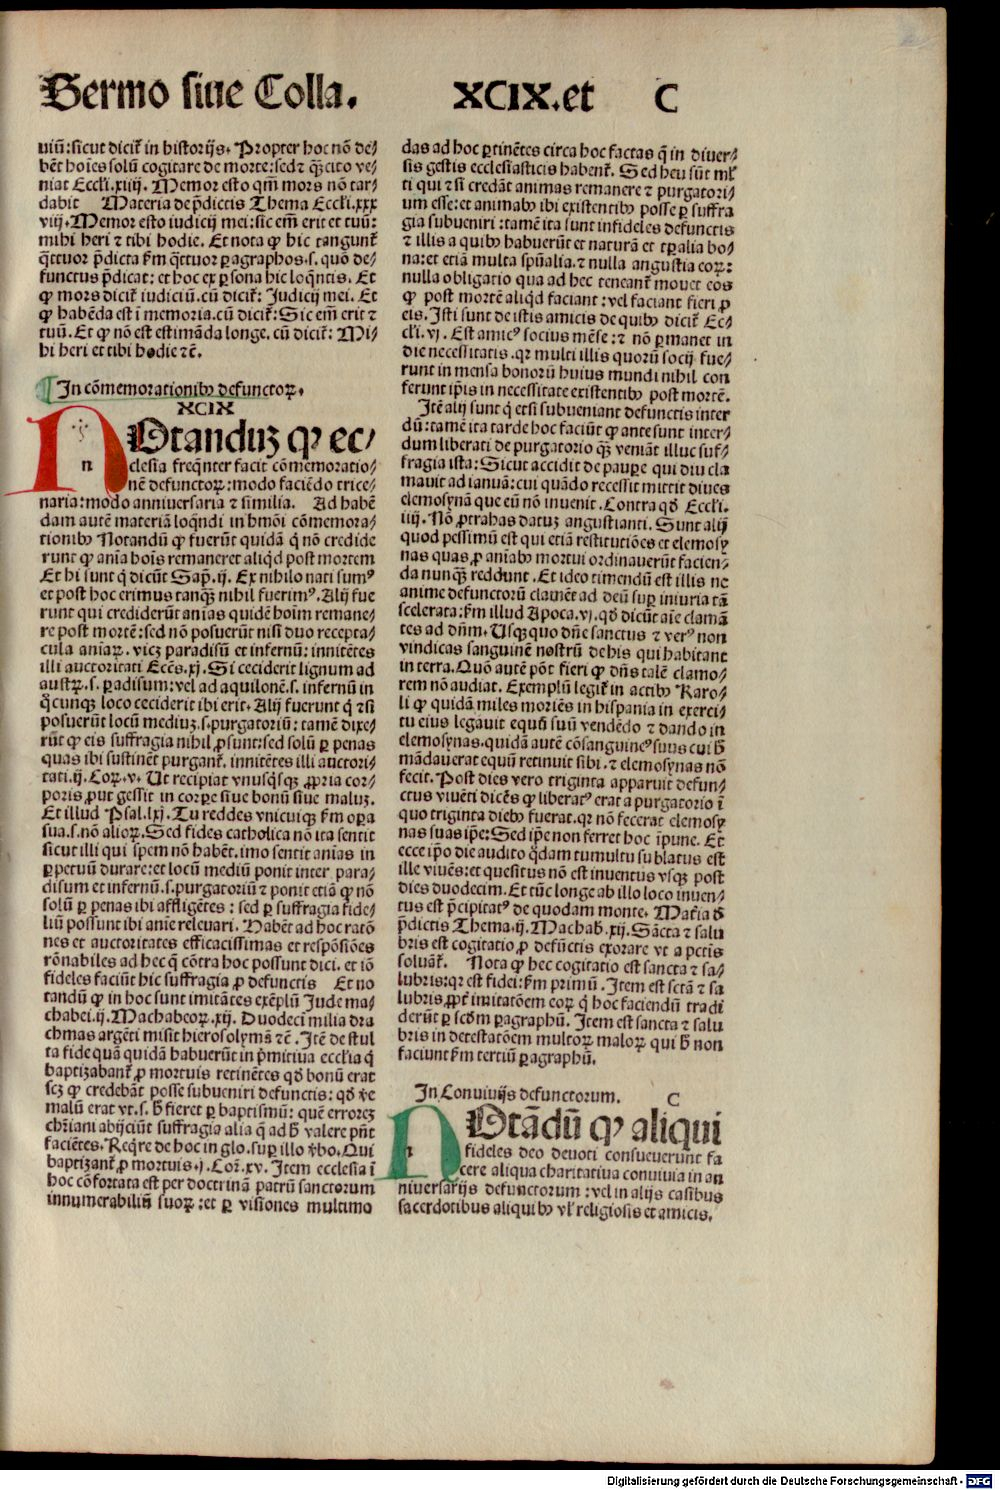 Sermo siue Colla. XCIX.et C
uiū:sicut dicit᷑ in historijs. Propter hoc nō de/
bēt hoīes solū cogitare de morte:sed ⁊ q̄ cito ve/
niat Eccli.xiiij. Memor esto qm̄ mors nō tar/
dabit Materia de p̄dictis Thema Eccli.xxx
viij. Memor esto iudicij mei: sic em̄ erit et tuū:
mihi heri ⁊ tibi hodie. Et nota ꝙ hic tangunt᷑
q̄ttuor p̄dicta ẜm q̄ttuor ꝑagraphos.s. quō de/
functus p̄dicat: et hoc ex ꝑsona hic loq̄ntis. Et
ꝙ mors dicit᷑ iudiciū. cū dicit᷑: Judicij mei. Et
ꝙ habēda est ī memoria. cū dicit᷑: Sic em̄ erit ⁊
tuū. Et ꝙ nō est estimāda longe. cū dicit᷑: Mi/
hi heri et tibi hodie ⁊c̄.
¶ In cōmemorationibꝰ defunctoꝝ.
XCIX
n Otanduꝫ ꝙ ec/
clesia freq̄nter facit cōmemoratio/
nē defunctoꝝ: modo faciēdo trice/
naria: modo anniuersaria ⁊ similia. Ad habē
dam autē materiā loq̄ndi in hmōi cōmemora/
tionibꝰ Notandū ꝙ fuerūt quidā q̄ nō credide
runt ꝙ anīa hoīs remaneret aliqd̄ post mortem
Et hi sunt q̄ dicūt Sap̄.ij. Ex nihilo nati sumꝰ
et post hoc erimus tanq̄ꝫ nihil fuerimꝰ. Alij fue
runt qui crediderūt anīas quidē hoīm remane/
re post mortē: sed nō posuerūt nisi duo recepta/
cula anīaꝝ. vicꝫ paradisū et infernū: innitētes
illi auctoritati Ecc̄s.xj. Si ceciderit lignum ad
austꝝ.s. ꝑadisum: vel ad aquilonē.s. infernū in
q̄cunqꝫ loco ceciderit ibi erit. Alij fuerunt q̄ ⁊ si
posuerūt locū mediuꝫ.s. purgatoriū: tamē dixe/
rūt ꝙ eis suffragia nihil ꝓsunt: sed solū ꝑ penas
quas ibi sustinēt purgant᷑. innitētes illi auctori/
tati.ij. Coꝝ.v. Ut recipiat vnusq̄sqꝫ ꝓpria cor/
poris ꝓut gessit in corꝑe siue bonū siue maluꝫ.
Et illud Psal.lxj. Tu reddes vnicuiqꝫ ẜm oꝑa
sua.s. nō alioꝝ. Sed fides catholica nō ita sentit
sicut illi qui spem nō habēt. imo sentit anīas in
ꝑpetuū durare: et locū mediū ponit inter para/
disum et infernū.s. purgatoriū ⁊ ponit etiā ꝙ nō
solū ꝑ penas ibi affligētes: sed ꝑ suffragia fide/
liū possunt ibi anīe releuari. Habēt ad hoc ratō
nes et auctoritates efficacissimas et respōsiōes
rōnabiles ad hec q̄ cōtra hoc possunt dici. et iō
fideles faciūt hic suffragia ꝓ defunctis Et no
tandū ꝙ in hoc sunt imitātes exēplū Jude ma/
chabei.ij. Machabeoꝝ.xij. Duodecī milia dra
chmas argēti misit hierosolymā ⁊c̄. Itē de stul
ta fide quā quidā habuerūt in p̄mitiua ecclīa q̄
baptizabant᷑ ꝓ mortuis retinētes qd̄ bonū erat
scꝫ ꝙ credebāt posse subueniri defunctis: qd̄ ve
malū erat vt.s. h̄ fieret ꝑ baptismū: quē erroreꝫ
chr̄iani abijciūt suffragia alia q̄ ad h̄ valere pn̄t
faciētes. Req̄re de hoc in glo. suꝑ illo v̄bo. Qui
baptizant᷑ ꝓ mortuis.j. Coꝝ.xv. Item ecclesia ī
hoc cōfortata est per doctrinā patrū sanctorum
innumerabiliū suoꝝ: et ꝑ visiones multimo
das ad hoc ꝑtinētes circa hoc factas q̄ in diuer/
sis gestis ecclesiasticis habent᷑. Sed heu sūt ml̄
ti qui ⁊ si credāt animas remanere ⁊ purgatori/
um esse: et animabꝰ ibi existentibꝰ posse ꝑ suffra
gia subueniri: tamē ita sunt infideles defunctis
⁊ illis a quibꝰ habuerūt et naturā et tꝑalia bo/
na: et etiā multa spūalia. ⁊ nulla angustia eoꝝ:
nulla obligatio qua ad hec teneant᷑ mouet eos
ꝙ post mortē aliqd̄ faciant: vel faciant fieri ꝓ
eis. Isti sunt de istis amicis de quibꝰ dicit᷑ Ec/
cli.vj. Est amicꝰ socius mēse: ⁊ nō ꝑmanet in
die necessitatis. qꝛ multi illis quorū socij fue/
runt in mensa bonorū huius mundi nihil con
ferunt ip̄is in necessitate existentibꝰ post mortē.
Itē alij sunt q̄ etsi subueniant defunctis inter
dū: tamē ita tarde hoc faciūt ꝙ ante sunt inter/
dum liberati de purgatorio q̄ꝫ veniāt illuc suf/
fragia ista: Sicut accidit de pauꝑe qui diu cla
mauit ad ianuā: cui quādo recessit mittit diues
elemosynā que eū nō inuenit. Contra qd̄ Eccli.
iiij. Nō ꝓtrahas datuꝫ angustianti. Sunt alij
quod pessimū est qui etiā restitutiōes et elemosy
nas quas ꝓ aniabꝰ mortui ordinauerūt facien/
da nunq̄ꝫ reddunt. Et ideo timendū est illis ne
anime defunctorū clament ad deū suꝑ iniuria tā
scelerata: ẜm illud Apoca.vj. qd̄ dicūt aīe clamā
tes ad dn̄m. Usqꝫquo dn̄e sanctus ⁊ verꝰ non
vindicas sanguinē nostrū de his qui habitant
in terra. Quō autē pōt fieri ꝙ dn̄s talē clamo/
rem nō audiat. Exemplū legit᷑ in actibꝰ Karo/
li ꝙ quidā miles moriēs in hispania in exerci/
tu eius legauit equū suū vendēdo ⁊ dando in
elemosynas. quidā autē cōsanguineꝰ suus cui h̄
mādauerat equū retinuit sibi. ⁊ elemosynas nō
fecit. Post dies vero triginta apparuit defun/
ctus viuēti dicēs ꝙ liberatꝰ erat a purgatorio ī
quo triginta diebꝰ fuerat. qꝛ nō fecerat elemosy
nas suas ip̄e: Sed ip̄e non ferret hoc īpune. Et
ecce ip̄o die audito q̄dam tumultu sublatus est
ille viuēs: et quesitus nō est inuentus vsqꝫ post
dies duodecim. Et tūc longe ab illo loco inuen/
tus est p̄cipitatꝰ de quodam monte. Mat̄ia de
p̄dictis Thema.ij. Machab.xij. Sācta ⁊ salu
bris est cogitatio ꝓ defūctis exorare vt a pctīs
soluāt᷑. Nota ꝙ hec cogitatio est sancta ⁊ sa/
lubris: qꝛ est fidei: ẜm primū. Item est sctā ⁊ sa
lubris ꝓpt̄ imitatōem eoꝝ q̄ hoc faciendū tradi
derūt ꝑ scd̄m ꝑagraphū. Item est sancta ⁊ salu
bris in detestatōem multoꝝ maloꝝ qui h̄ non
faciunt ẜm tertiū ꝑagraphū.
In Conuiuijs defunctorum. C
n Otādū ꝙ aliqui
fideles deo deuoti consueuerunt fa
cere aliqua charitatiua conuiuia in an
niuersarijs defunctorum: vel in alijs casibus
sacerdotibus aliquibꝰ vl̄ religiosis et amicis.
Digitalisierung gefördert durch die Deutsche Forschungsgemeinschaft - DFG